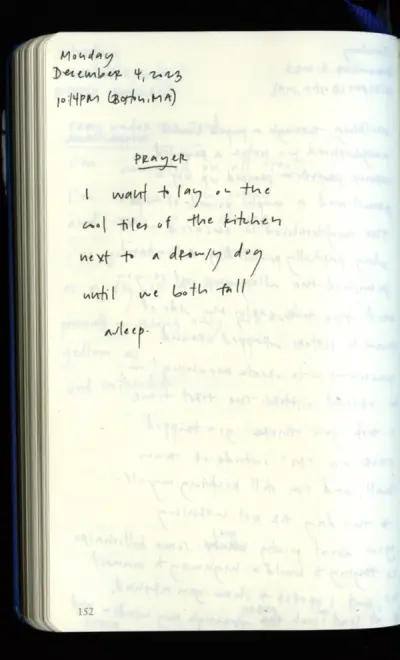 Monday
December 4, 2023
10:14PM (Boston, MA)
PRAYER
I want to lay on the
cool tiles of the kitchen
next to a drowsy dog
until we both fall
asleep.
152